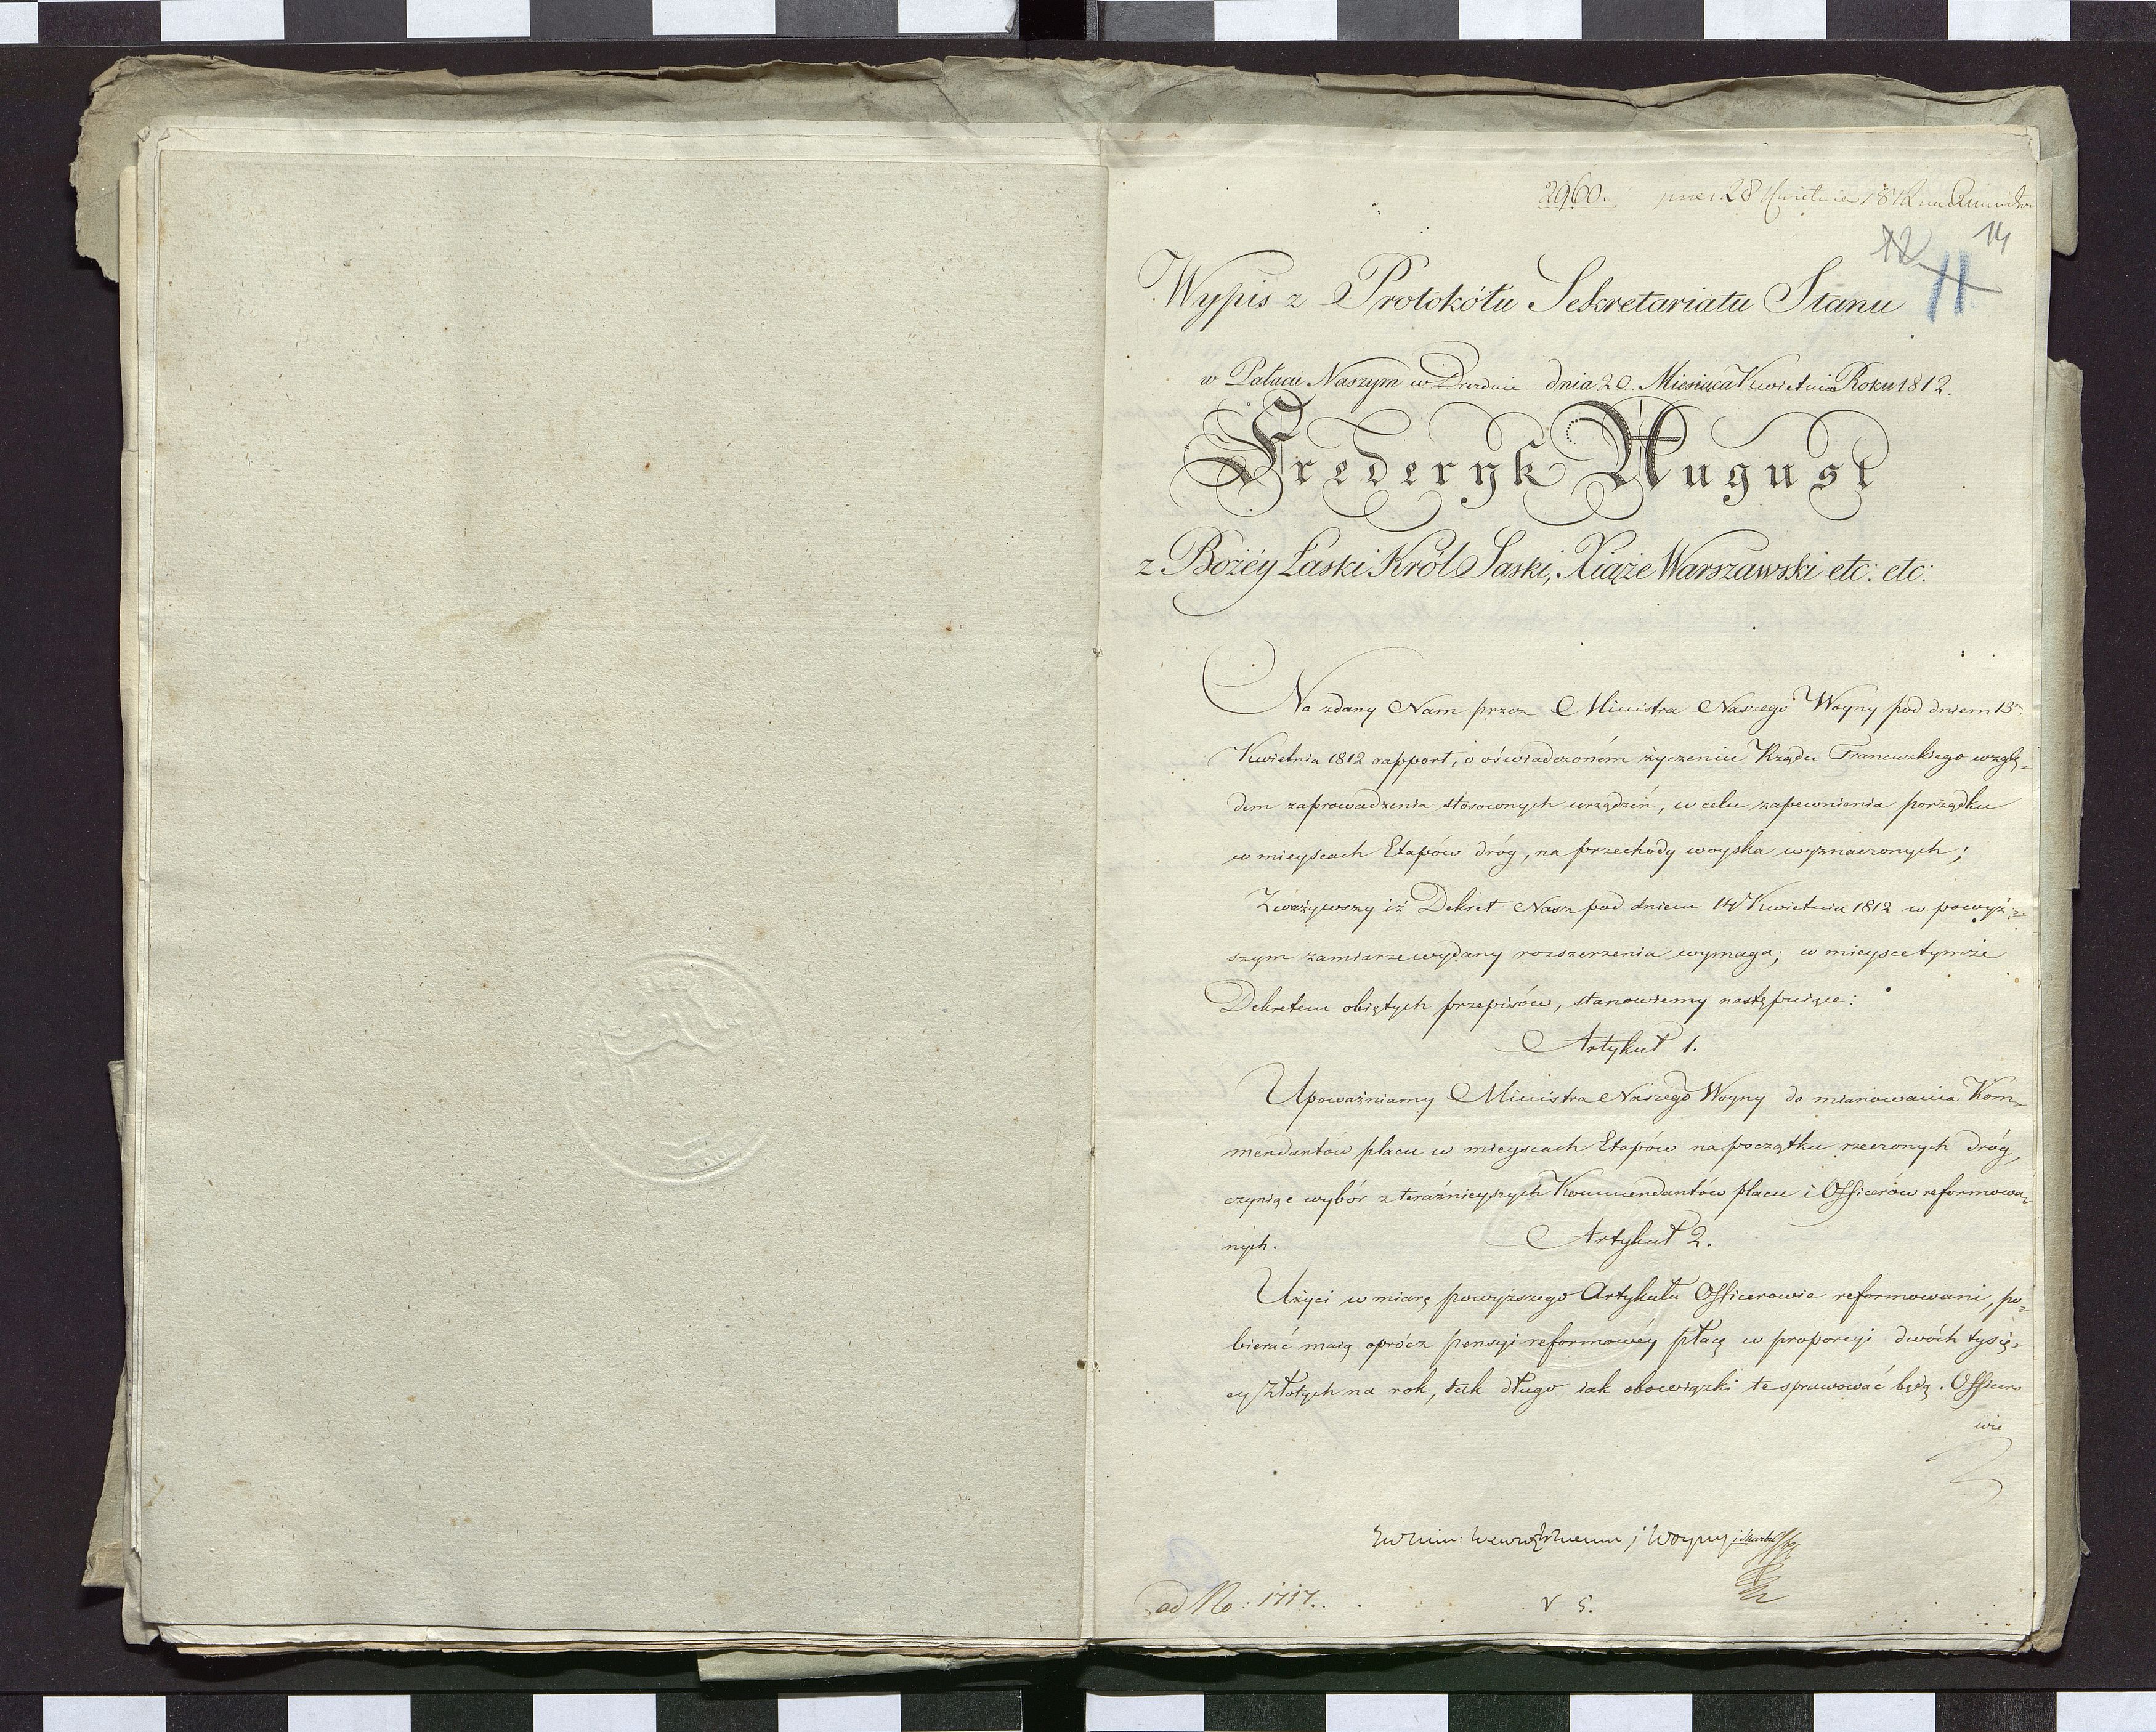 2960. 28 Kwietnia 1812
12 14
11
Wypis z Protokółu Sekretariatu Stanu
w Pałacu Naszym w Dreznie dnia 20 Miesiąca Kwietnia Roku 1812.
Frederyk August
z Bożéy Łaski Król Saski, Xiąże Warszawski etc: etc:
Na zdany Nam przez Ministra Naszego Woyny pod dniem 13.
Kwietnia 1812 rapport, o oświadczoném życzeniu Rządu Francuzkiego wzglę-
dem zaprowadzenia stosownych urządzeń, w celu zapewnienia porządku
w mieyscach Etapów dróg, na przechody woyska wyznaczonych;
Zważywszy iż Dekret Nasz pod dniem 14 Kwietnia 1812 w powyż-
szym zamiarze wydany rozszerzenia wymaga; w mieysce tymże
Dekretem obiętych przepisów, stanowiemy następuiące:
Artykuł 1.
Upoważniamy Ministra Naszego Woyny do mianowania Kom-
mendantów placu w mieyscach Etapów na początku rzeczonych dróg,
czyniąc wybór z teraźnieyszych Kommendantów placu i Officerów reformowa-
nych.
Artykuł 2.
Użyci w miarę powyższego Artykułu Officerowie reformowani, po-
bierać maią oprócz pensyi reformowéy płacę w proporcyi dwóch tysię-
cy Złotych na rok, tak długo iak obowiązki te sprawować będą. Officero
wie
Woyny i Skarbu
ad No: 1717.
V S.